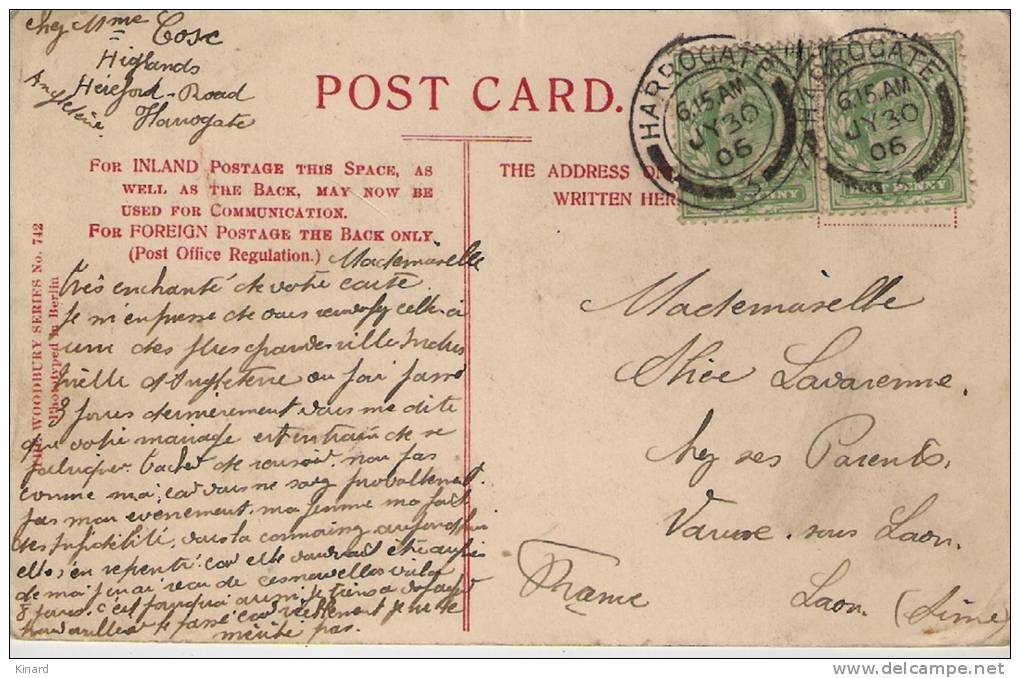 chez Mme Cosc
Higlands
Hereford-Road
Harrogate
Angleterre
POST CARD.
FOR INLAND POSTAGE THIS SPACE, AS
WELL AS THE BACK, MAY NOW BE
USED FOR COMMUNICATION.
FOR FOREIGN POSTAGE THE BACK ONLY
(Post Office Regulation.)
THE ADDRESS ON
WRITTEN HER
HARROGATE
6.15.AM
JY 30
06
3
HARROGATE
6.15.AM
JY 30
06
PENNY
PENNY
THE WOODBURY SERIES No. 742
Phototyped in Berlin
Mademoiselle
Très enchanté de votre carte
Je m'empresse de vous celle-ci
une des plus grandes ville Indus
trielle d'Angleterre ou j'ai passé
8 jours dernièrement vous me dite
que votre mariage est en train de se
fabriquer tachez de reussir, non pas
comme moi, car vous ne savez probablement
pas mon evenement, ma femme ma fait
des Infidélité, vous la connaissez aujourd'hui
elle, en repenti car elle voudrait être auprès
de moi, j'ai reçu de ces nouvelles voila
8 jours, c'est pourquoi aussi je
travailler le passé car réellement je ne le
mérite pas.
Mademoiselle
Alice Lavarenne.
chez ses Parents,
Vaux. sous Laon.
Laon. (Aisne)
France
Kinard
delcampe.net